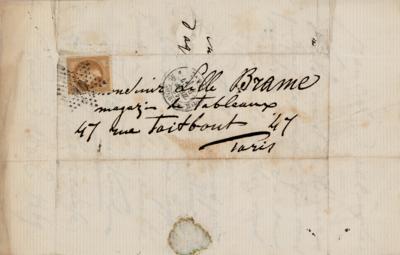 Monsieur dille Brame
magazin de Tableaux
47 rue Taitbout 47
Paris